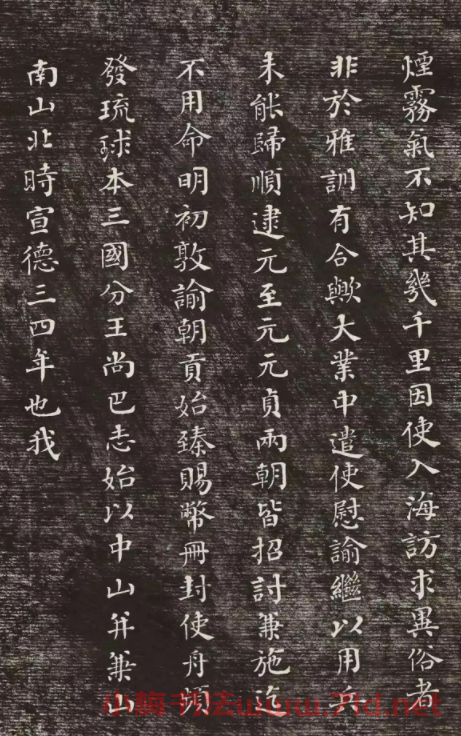 煙霧氣不知其幾千里因使入海訪求異俗者
非於雅訓有合歟大業中遣使慰諭繼以用兵
未能歸順逮元至元元貞兩朝皆招討兼施迄
不用命明初敦諭朝貢始臻賜幣冊封使舟頻
發琉球本三國分王尚巴志始以中山并兼山
南山北時宣德三四年也我
小楷书法www.71d.net